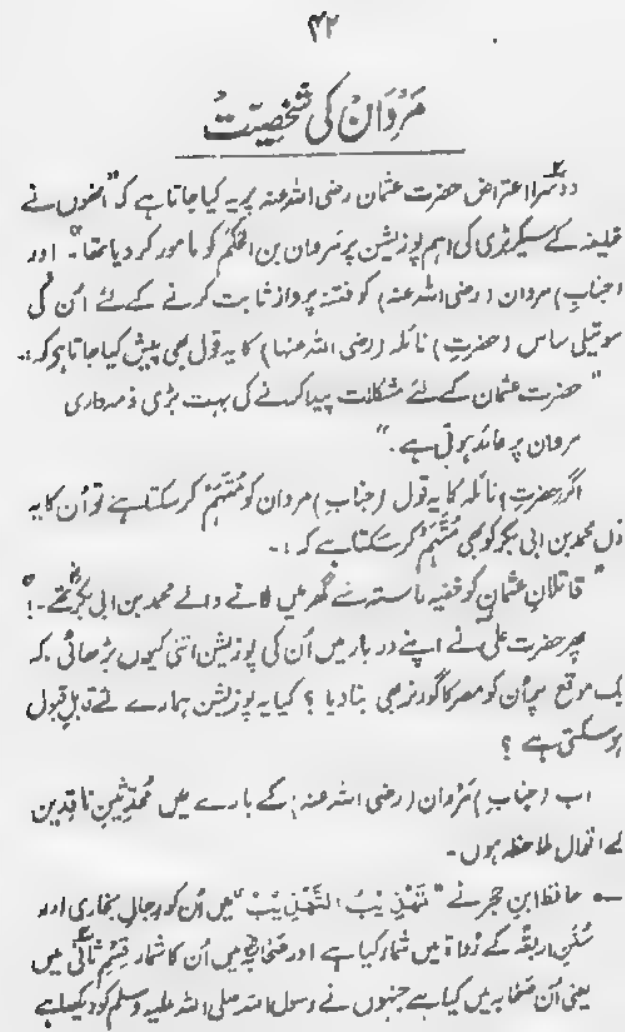 ۴۲
مَرْوَانْ کی شخصیّتْ
دوسرا اعتراض حضرت عثمان رضی اللہ عنہ پر یہ کیا جاتا ہے کہ "انھوں نے
خلیفہ کے سیکریٹری کی اہم پوزیشن پر مَروان بن الحَکَمْ کو مامور کر دیا تھا"۔ اور
(جنابِ) مروان (رضی اللہ عنہ) کو فتنہ پرداز ثابت کرنے کے لئے اُن کی
سوتیلی ساس (حضرتِ) نائلہ (رضی اللہ عنہا) کا یہ قول بھی پیش کیا جاتا ہے کہ :۔
"حضرت عثمان کے لئے مشکلات پیدا کرنے کی بہت بڑی ذمہ داری
مروان پر عائد ہوتی ہے۔"
اگر (حضرتِ) نائلہ کا یہ قول (جنابِ) مردان کو مُتَّہَمْ کر سکتا ہے تو اُن کا یہ
قول محمد بن ابی بکر کو بھی مُتَّہَمْ کر سکتا ہے کہ :۔
"قاتلانِ عثمان کو خفیہ راستہ سے گھر میں لانے والے محمد بن ابی بکر تھے۔!"
پھر حضرت علی نے اپنے دربار میں اُن کی پوزیشن اتنی کیوں بڑھائی۔ کہ
یک موقع پر اُن کو مصر کا گورنر بھی بنا دیا ؟ کیا یہ پوزیشن ہمارے لئے قابلِ قبول
ہو سکتی ہے ؟
اب (جنابِ) مَرْوان (رضی اللہ عنہ) کے بارے میں مُحدِّثینِ ناقِدین
کے اقوال ملاحظہ ہوں۔
۔۔ حافظ ابنِ حجر نے "تَہْذِیْبُ التَّہْذِیْبْ" میں اُن کو رجالِ بخاری اور
سُنَنِ اربعہ کے رُواۃ میں شمار کیا ہے اور صَحابہ میں اُن کا شمار قِسْمِ ثانی میں
یعنی اُن صَحابہ میں کیا ہے جنہوں نے رسول اللہ صلی اللہ علیہ وسلم کو دیکھا ہے